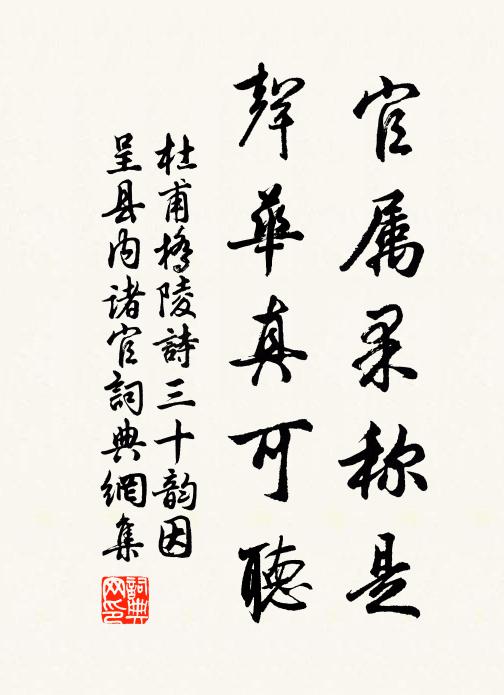 官属果称是
聲華真可聽
杜甫橋陵詩三十韵因
呈县内诸官詞典網集
詞典网印